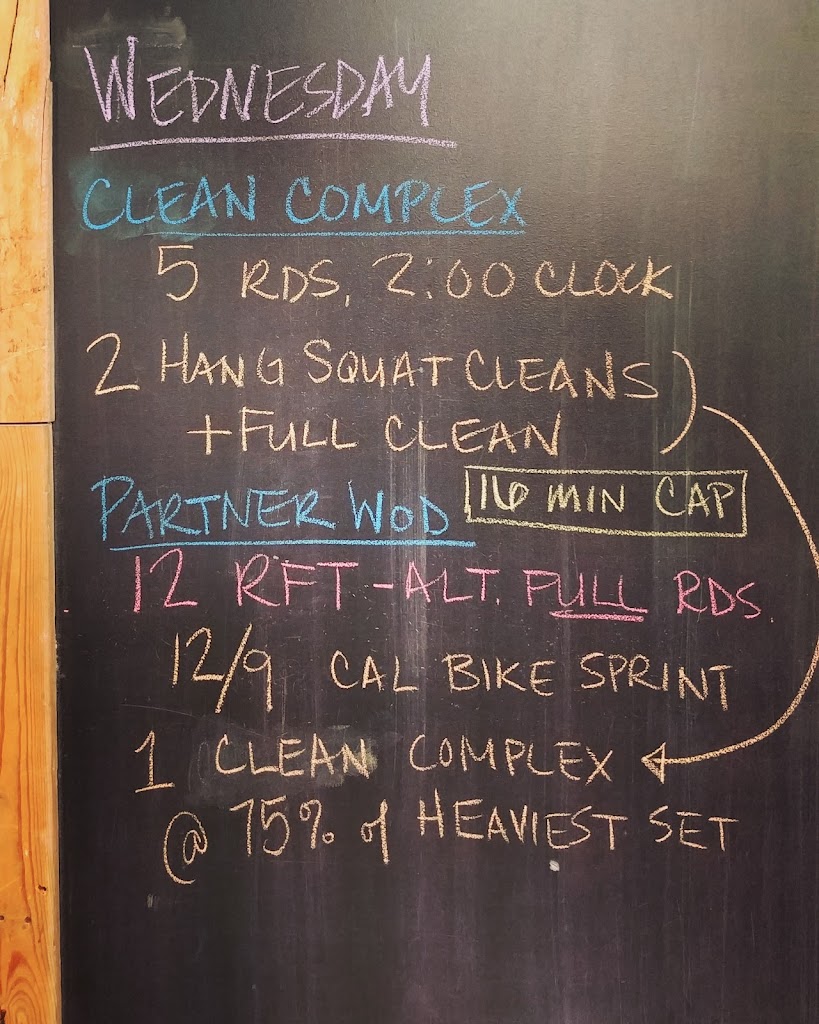 WEDNESDAY
CLEAN COMPLEX
5 RDS, 2:00 CLOCK
2 HANG SQUAT CLEANS
+ FULL CLEAN
PARTNER WOD 16 MIN CAP
12 RFT - ALT. FULL RDS
12/9 CAL BIKE SPRINT
1 CLEAN COMPLEX
@ 75% of HEAVIEST SET